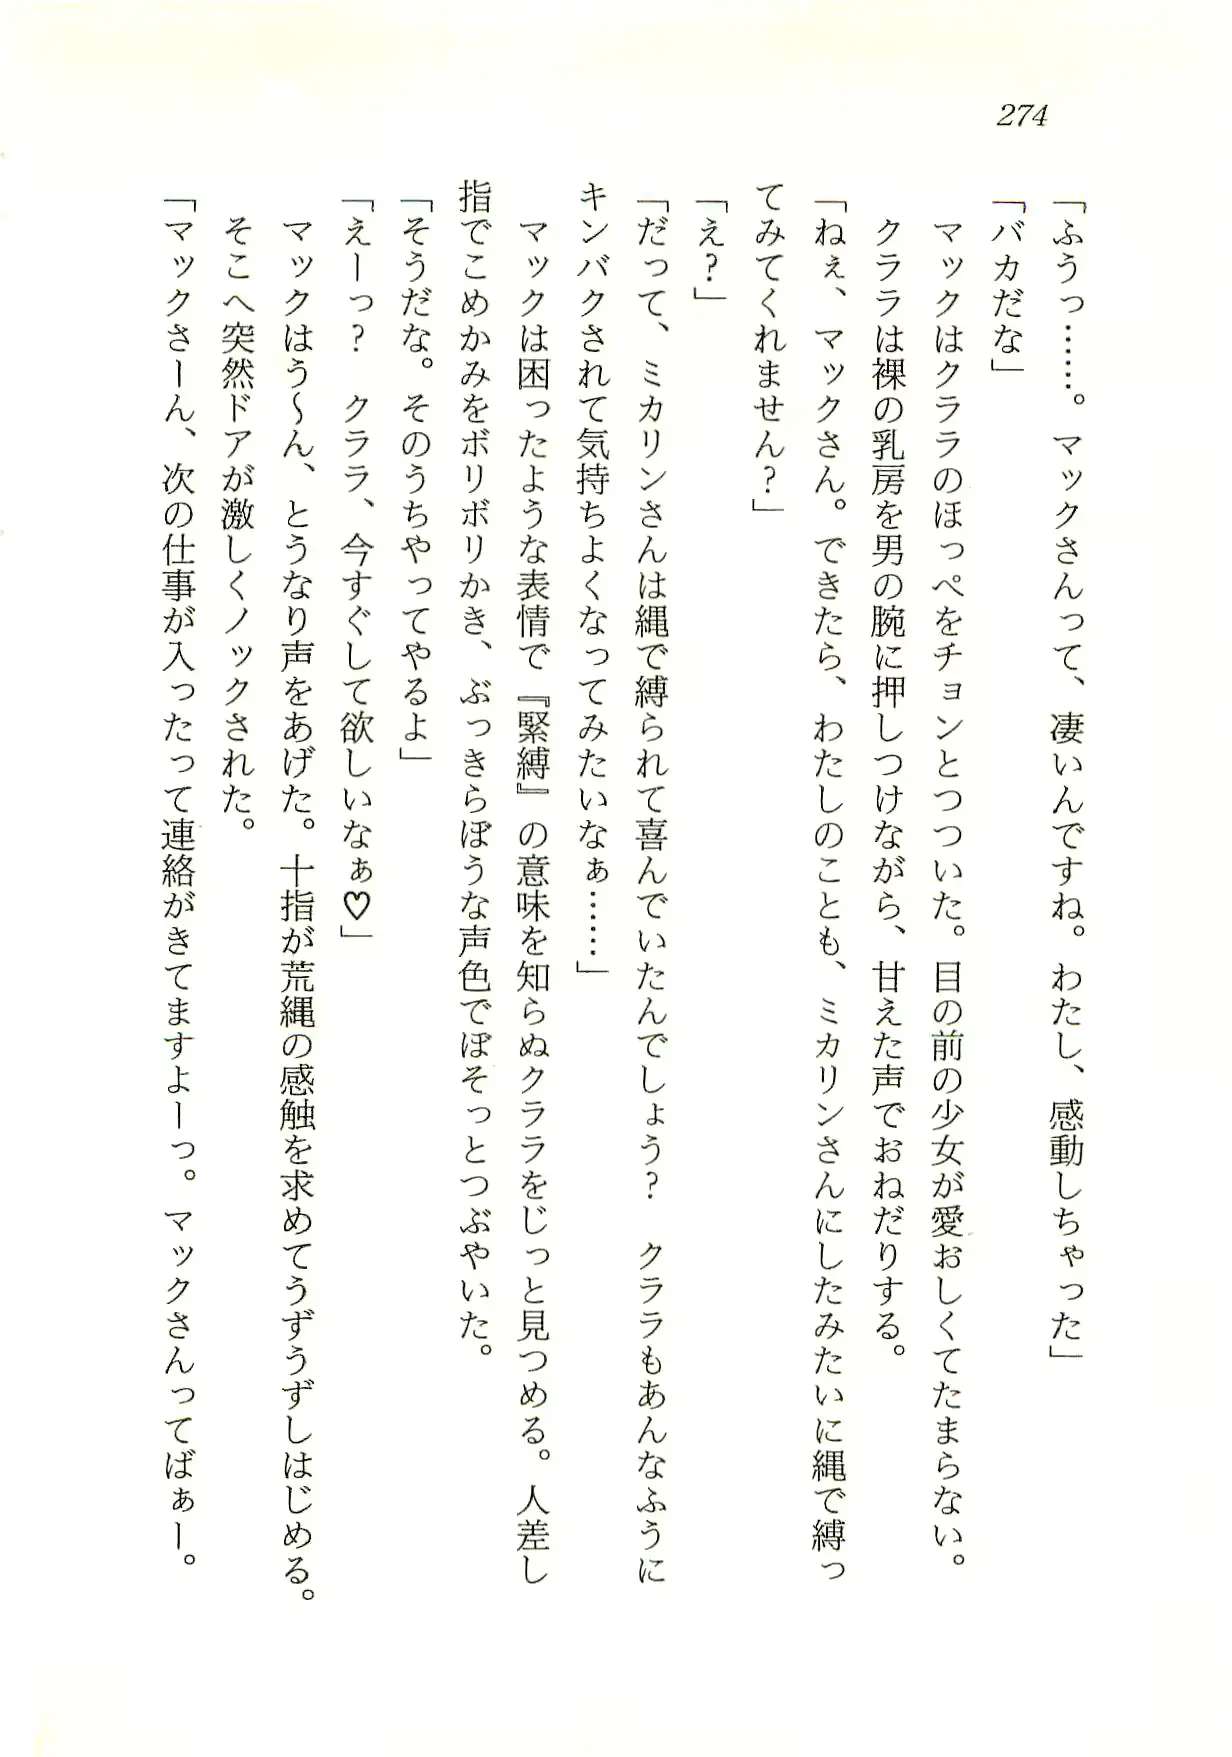 274
「ふうっ……。マックさんって、凄いんですね。わたし、感動しちゃった」
「バカだな」
　マックはクララのほっぺをチョンとつついた。目の前の少女が愛おしくてたまらない。
　クララは裸の乳房を男の腕に押しつけながら、甘えた声でおねだりする。
「ねぇ、マックさん。できたら、わたしのことも、ミカリンさんにしたみたいに縄で縛っ
てみてくれません？」
「え？」
「だって、ミカリンさんは縄で縛られて喜んでいたんでしょう？　クララもあんなふうに
キンバクされて気持ちよくなってみたいなぁ……」
　マックは困ったような表情で『緊縛』の意味を知らぬクララをじっと見つめる。人差し
指でこめかみをボリボリかき、ぶっきらぼうな声色でぼそっとつぶやいた。
「そうだな。そのうちやってやるよ」
「えーっ？　クララ、今すぐして欲しいなぁ♡」
　マックはう～ん、とうなり声をあげた。十指が荒縄の感触を求めてうずうずしはじめる。
　そこへ突然ドアが激しくノックされた。
「マックさーん、次の仕事が入ったって連絡がきてますよーっ。マックさんってばぁー。